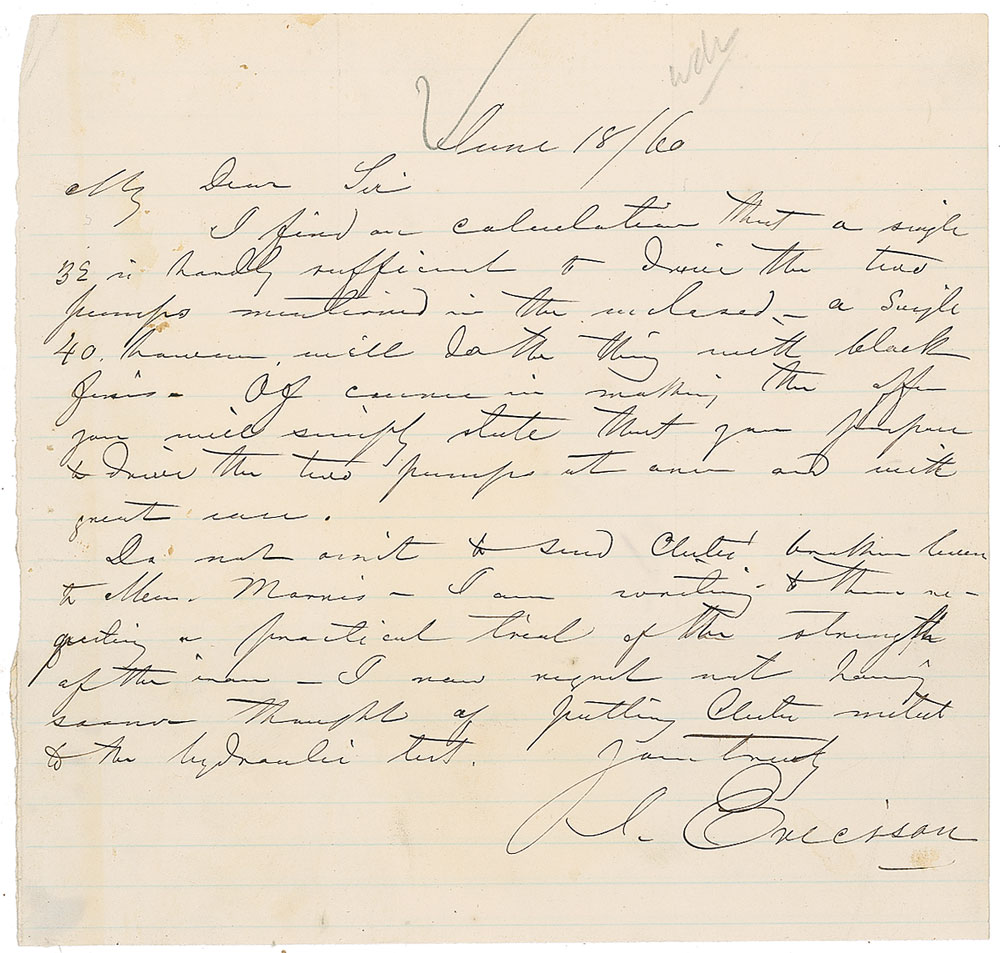 June 18/60
My Dear Sir
I find on calculation that a single
32 is hardly sufficient to drive the two
pumps mentioned in the inclosed – a single
40. however, will do the thing with black
fires – Of course in making the offer
you will simply state that you propose
to drive the two pumps at once and with
great ease.
Do not omit to send Clutes' broken lever
to Mess. Morris – I am writing to them re-
questing a practical trial of the strength
of the iron – I now regret not having
sooner thought of putting Clutes metal
to the hydraulic test. Yours truly
J. Ericsson